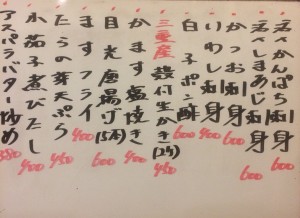 活〆かんぱち刺身 600
活〆しまあじ刺身 600
かつお刺身 600
いわし刺身 400
白子ポン酢 600
三重産 殻付生かき(2ケ) 450
かます塩焼き 600
目光唐揚げ(5本) 600
ますフライ 400
たらの芽天ぷら 450
水茄子煮びたし 400
アスパラバター炒め 380